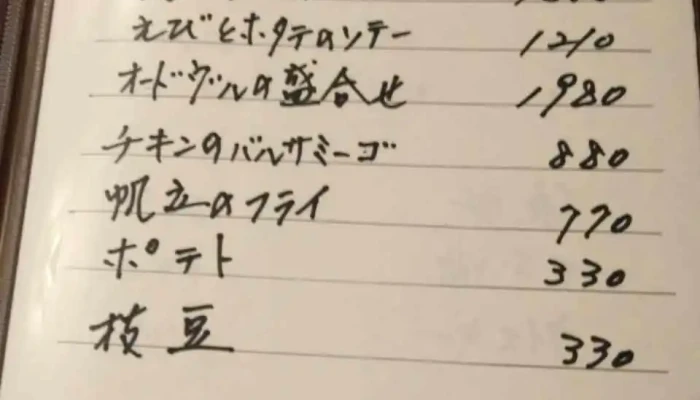 えびとホタテのソテー 1210
オードヴルの盛合せ 1980
チキンのバルサミーゴ 880
帆立のフライ 770
ポテト 330
枝豆 330